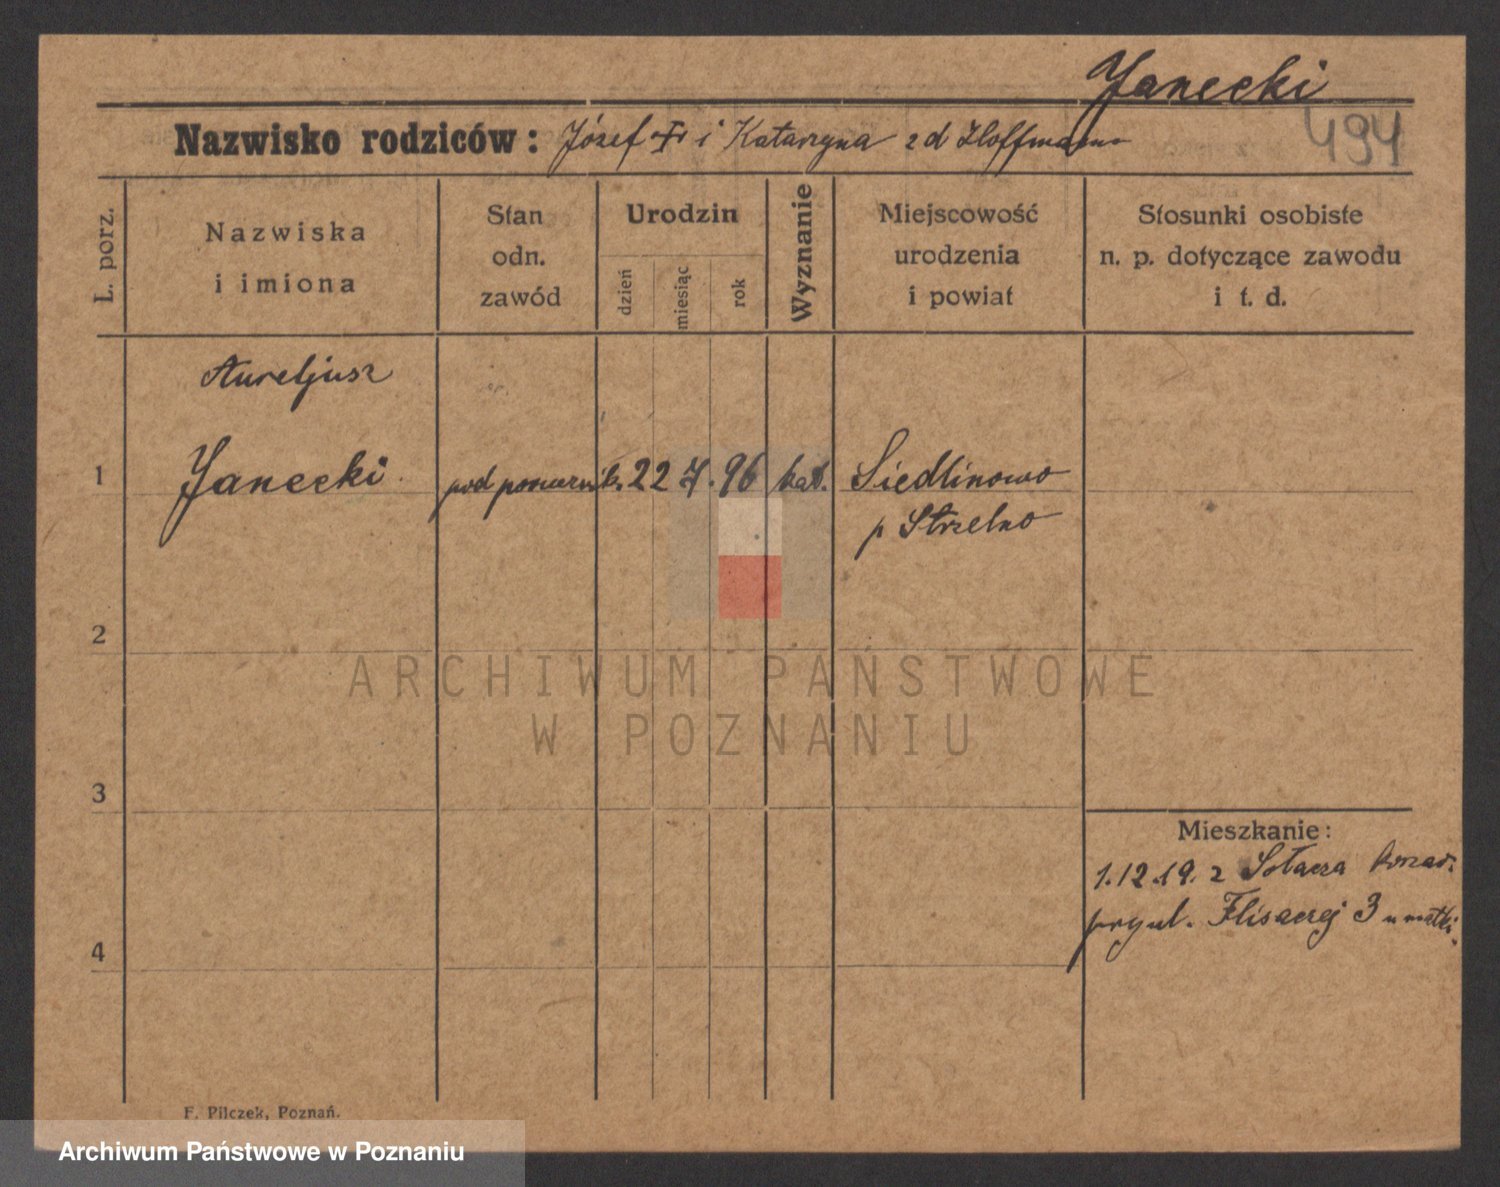 Janecki
494
Nazwisko rodziców: Józef i Katarzyna z d Hoffmann
L. porz.
Nazwiska
i imiona
Stan
odn.
zawód
Urodzin
dzień
miesiąc
rok
Wyznanie
Miejscowość
urodzenia
i powiat
Stosunki osobiste
n. p. dotyczące zawodu
i t. d.
Aureljusz
1 Janecki pod 22 7. 96 kat. Siedlinowo
p Strzelno
2
ARCHIWUM PAŃSTWOWE
W POZNANIU
3
Mieszkanie:
1.12.19. z Sołacza
przy ul. Flisaczej 3 u matki.
4
F. Pilczek, Poznań.
Archiwum Państwowe w Poznaniu